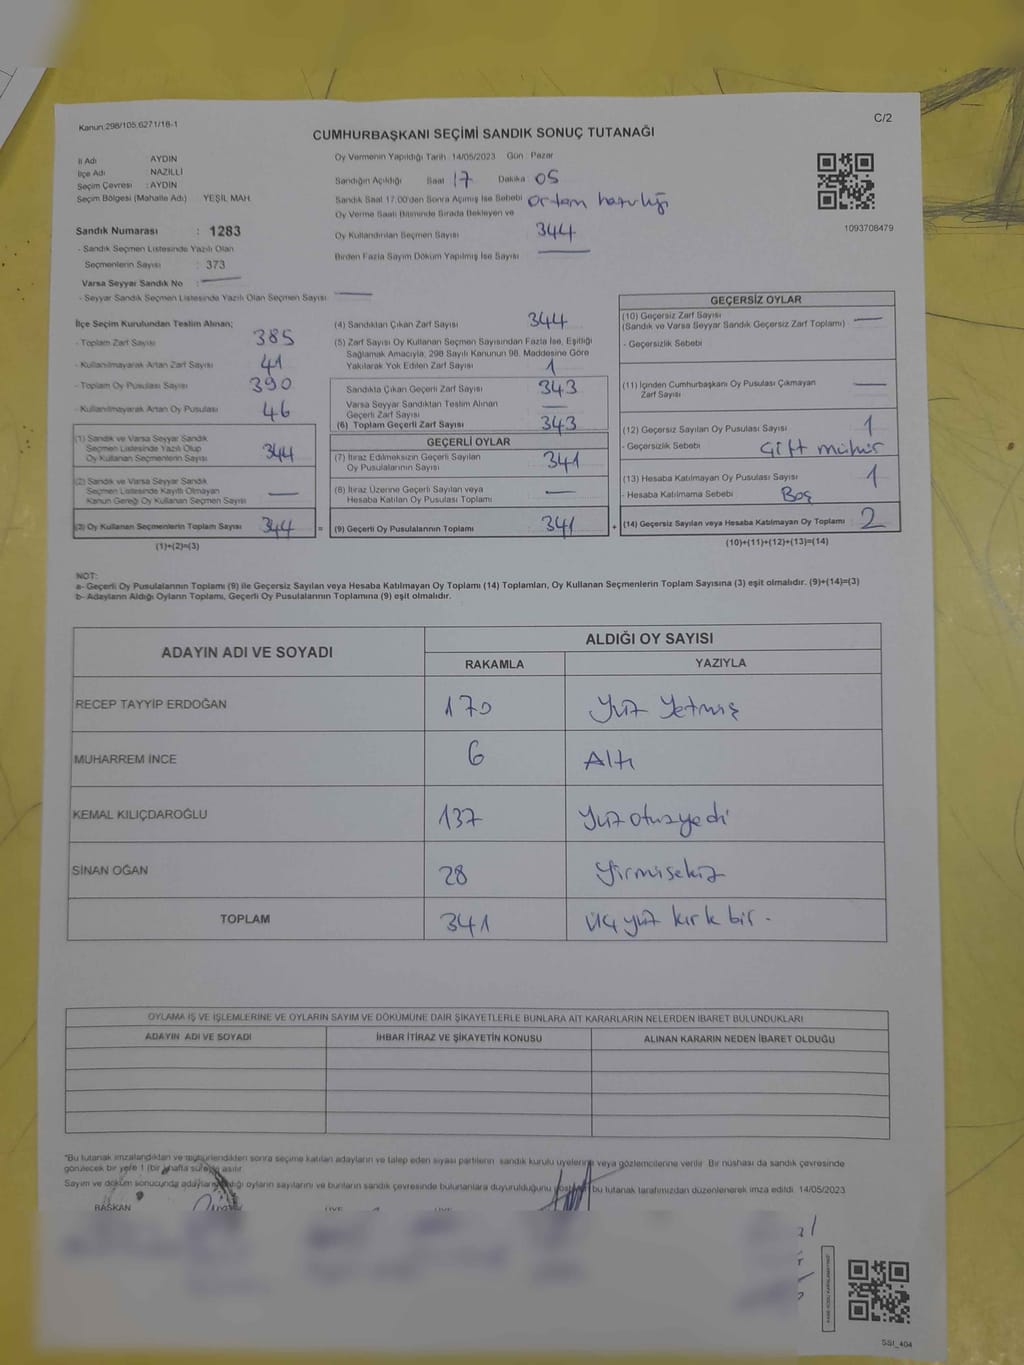 Kanun:298/105,6271/16-1
C/2
CUMHURBAŞKANI SEÇİMİ SANDIK SONUÇ TUTANAĞI
İl Adı AYDIN
İlçe Adı : NAZİLLİ
Seçim Çevresi : AYDIN
Seçim Bölgesi (Mahalle Adı) YEŞİL MAH.
Oy Vermenin Yapıldığı Tarih: 14/05/2023 Gün : Pazar
Sandığın Açıldığı Saat 17 Dakika 05
Sandık Saat 17.00'den Sonra Açılmış İse Sebebi Ortam hazırlığı
Oy Verme Saati Bitiminde Sırada Bekleyen ve
Oy Kullandırılan Seçmen Sayısı 344
Birden Fazla Sayım Döküm Yapılmış İse Sayısı
1093708479
Sandık Numarası : 1283
- Sandık Seçmen Listesinde Yazılı Olan
Seçmenlerin Sayısı : 373
Varsa Seyyar Sandık No :
- Seyyar Sandık Seçmen Listesinde Yazılı Olan Seçmen Sayısı
İlçe Seçim Kurulundan Teslim Alınan;
- Toplam Zarf Sayısı 385
- Kullanılmayarak Artan Zarf Sayısı 41
- Toplam Oy Pusulası Sayısı 390
- Kullanılmayarak Artan Oy Pusulası 46
(1) Sandık ve Varsa Seyyar Sandık
Seçmen Listesinde Yazılı Olup
Oy Kullanan Seçmenlerin Sayısı 344
(2) Sandık ve Varsa Seyyar Sandık
Seçmen Listesinde Kayıtlı Olmayan
Kanun Gereği Oy Kullanan Seçmen Sayısı
(3) Oy Kullanan Seçmenlerin Toplam Sayısı 344 =
(1)+(2)=(3)
(4) Sandıktan Çıkan Zarf Sayısı 344
(5) Zarf Sayısı Oy Kullanan Seçmen Sayısından Fazla İse, Eşitliği
Sağlamak Amacıyla, 298 Sayılı Kanunun 98. Maddesine Göre
Yakılarak Yok Edilen Zarf Sayısı 1
Sandıkta Çıkan Geçerli Zarf Sayısı 343
Varsa Seyyar Sandıktan Teslim Alınan
Geçerli Zarf Sayısı
(6) Toplam Geçerli Zarf Sayısı 343
GEÇERLİ OYLAR
(7) İtiraz Edilmeksizin Geçerli Sayılan
Oy Pusulalarının Sayısı 341
(8) İtiraz Üzerine Geçerli Sayılan veya
Hesaba Katılan Oy Pusulası Toplamı
(9) Geçerli Oy Pusulalarının Toplamı 341 +
GEÇERSİZ OYLAR
(10) Geçersiz Zarf Sayısı
(Sandık ve Varsa Seyyar Sandık Geçersiz Zarf Toplamı)
- Geçersizlik Sebebi
(11) İçinden Cumhurbaşkanı Oy Pusulası Çıkmayan
Zarf Sayısı
(12) Geçersiz Sayılan Oy Pusulası Sayısı 1
- Geçersizlik Sebebi Çift mühür
(13) Hesaba Katılmayan Oy Pusulası Sayısı 1
- Hesaba Katılmama Sebebi Boş
(14) Geçersiz Sayılan veya Hesaba Katılmayan Oy Toplamı 2
(10)+(11)+(12)+(13)=(14)
NOT:
a- Geçerli Oy Pusulalarının Toplamı (9) ile Geçersiz Sayılan veya Hesaba Katılmayan Oy Toplamı (14) Toplamları, Oy Kullanan Seçmenlerin Toplam Sayısına (3) eşit olmalıdır. (9)+(14)=(3)
b- Adayların Aldığı Oyların Toplamı, Geçerli Oy Pusulalarının Toplamına (9) eşit olmalıdır.
ADAYIN ADI VE SOYADI
ALDIĞI OY SAYISI
RAKAMLA YAZIYLA
RECEP TAYYİP ERDOĞAN 170 Yüz Yetmiş
MUHARREM İNCE 6 Altı
KEMAL KILIÇDAROĞLU 137 Yüz otuzyedi
SİNAN OĞAN 28 Yirmisekiz
TOPLAM 341 Üç yüz kırk bir.
OYLAMA İŞ VE İŞLEMLERİNE VE OYLARIN SAYIM VE DÖKÜMÜNE DAİR ŞİKAYETLERLE BUNLARA AİT KARARLARIN NELERDEN İBARET BULUNDUKLARI
ADAYIN ADI VE SOYADI İHBAR İTİRAZ VE ŞİKAYETİN KONUSU ALINAN KARARIN NEDEN İBARET OLDUĞU
"Bu tutanak imzalandıktan ve mühürlendikten sonra seçime katılan adayların ve talep eden siyasi partilerin sandık kurulu üyelerine veya gözlemcilerine verilir. Bir nüshası da sandık çevresinde
görülecek bir yere 1 (bir) hafta süreyle asılır.
Sayım ve döküm sonucunda adayların aldığı oyların sayılarını ve bunların sandık çevresinde bulunanlara duyurulduğunu gösterir bu tutanak tarafımızdan düzenlenerek imza edildi. 14/05/2023
BAŞKAN
SSI_404